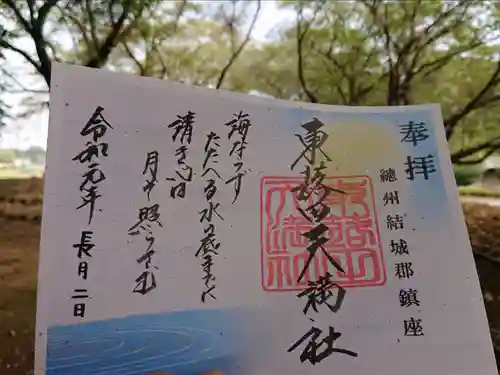 奉拝
總州結城郡鎮座
東蕗田天満社
海ならず
たたへる水の底までに
清き心は
月ぞ照らさむ
令和元年
長月二日